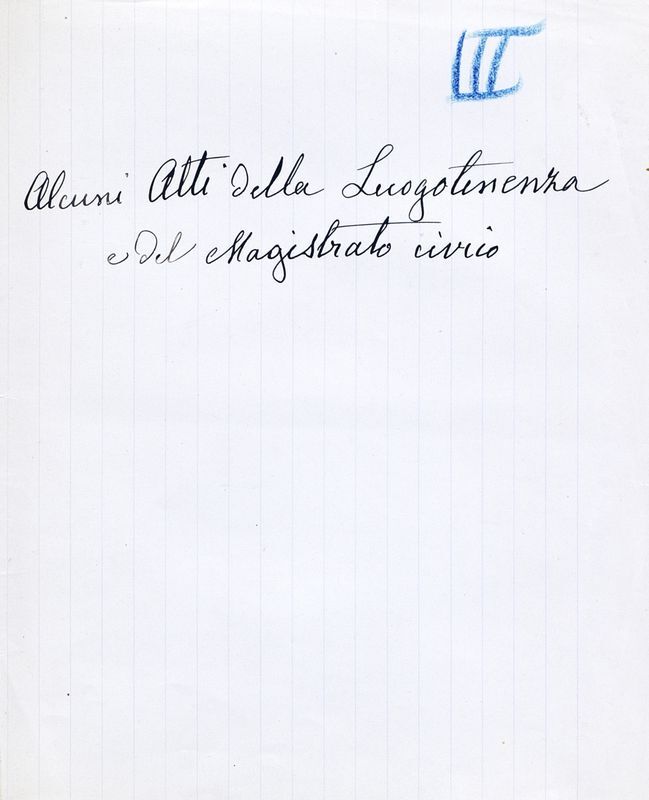 III
Alcuni Atti della Luogotenenza
e del Magistrato civico